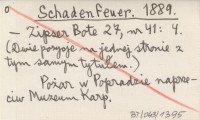 o
Schadenfeuer. 1889.
— Zipser Bote 27, nr 41: 4.
(Dwie pozycje na jednej stronie z
tym samym tytułem.)
Pożar w Popradzie naprze-
ciw Muzeum Karp.
BJ/063/1395